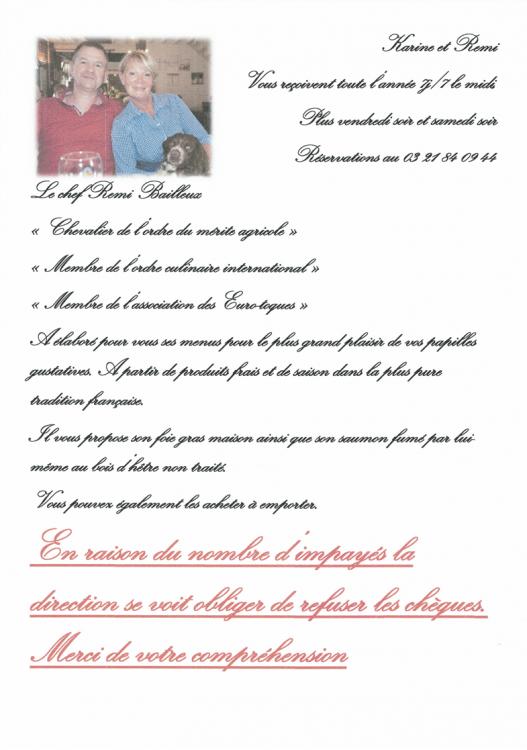 Karine et Remi
Vous reçoivent toute l'année 7j/7 le midi
Plus vendredi soir et samedi soir
Réservations au 03 21 84 09 44
Le chef Remi Bailleux
« Chevalier de l'ordre du mérite agricole »
« Membre de l'ordre culinaire international »
« Membre de l'association des Euro-toques »
A élaboré pour vous ses menus pour le plus grand plaisir de vos papilles
gustatives. A partir de produits frais et de saison dans la plus pure
tradition française.
Il vous propose son foie gras maison ainsi que son saumon fumé par lui-
même au bois d'hêtre non traité.
Vous pouvez également les acheter à emporter.
En raison du nombre d'impayés la
direction se voit obliger de refuser les chèques.
Merci de votre compréhension